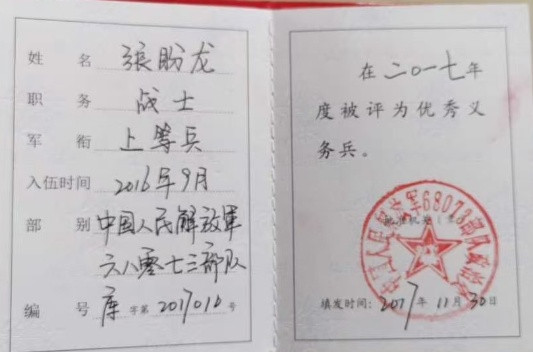 姓 名 张盼龙
职 务 战士
军 衔 上等兵
入伍时间 2016年9月
部 别 中国人民解放軍
六八零七三部队
编 号 库 字第 2017016 号
在二〇一七年
度被评为优秀义
务兵。
批准机关
68073部队
填发时间：2017年11月30日